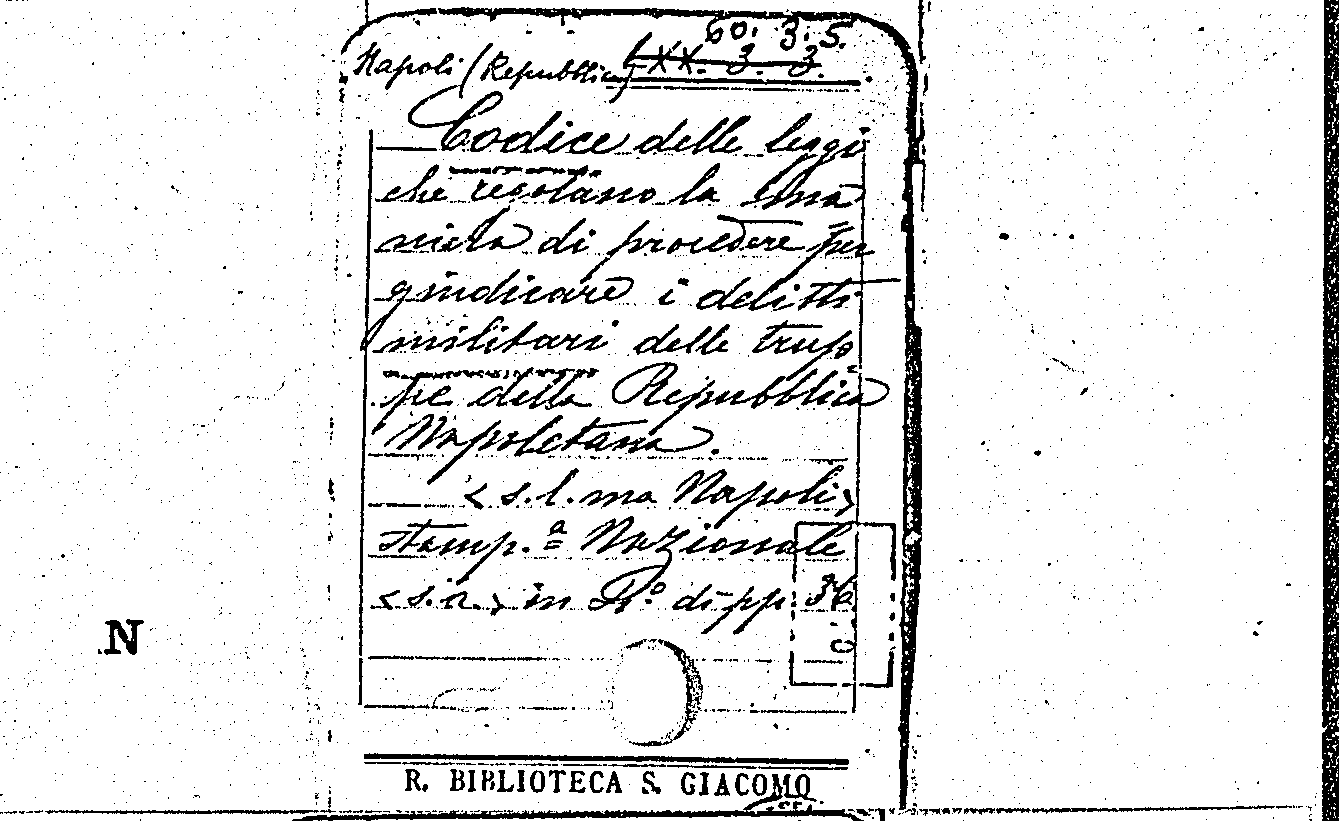 60. 3. 5.
Napoli (Repubblica) XX. 3. 3.
Codice delle leggi
che regolano la
niera di procedere per
giudicare i delitti
militari delle trup
pe della Repubblica
Napoletana.
< s. l. ma Napoli >
stamp.ª Nazionale
< s. a. > in di pp. 36
N
R. BIBLIOTECA S. GIACOMO